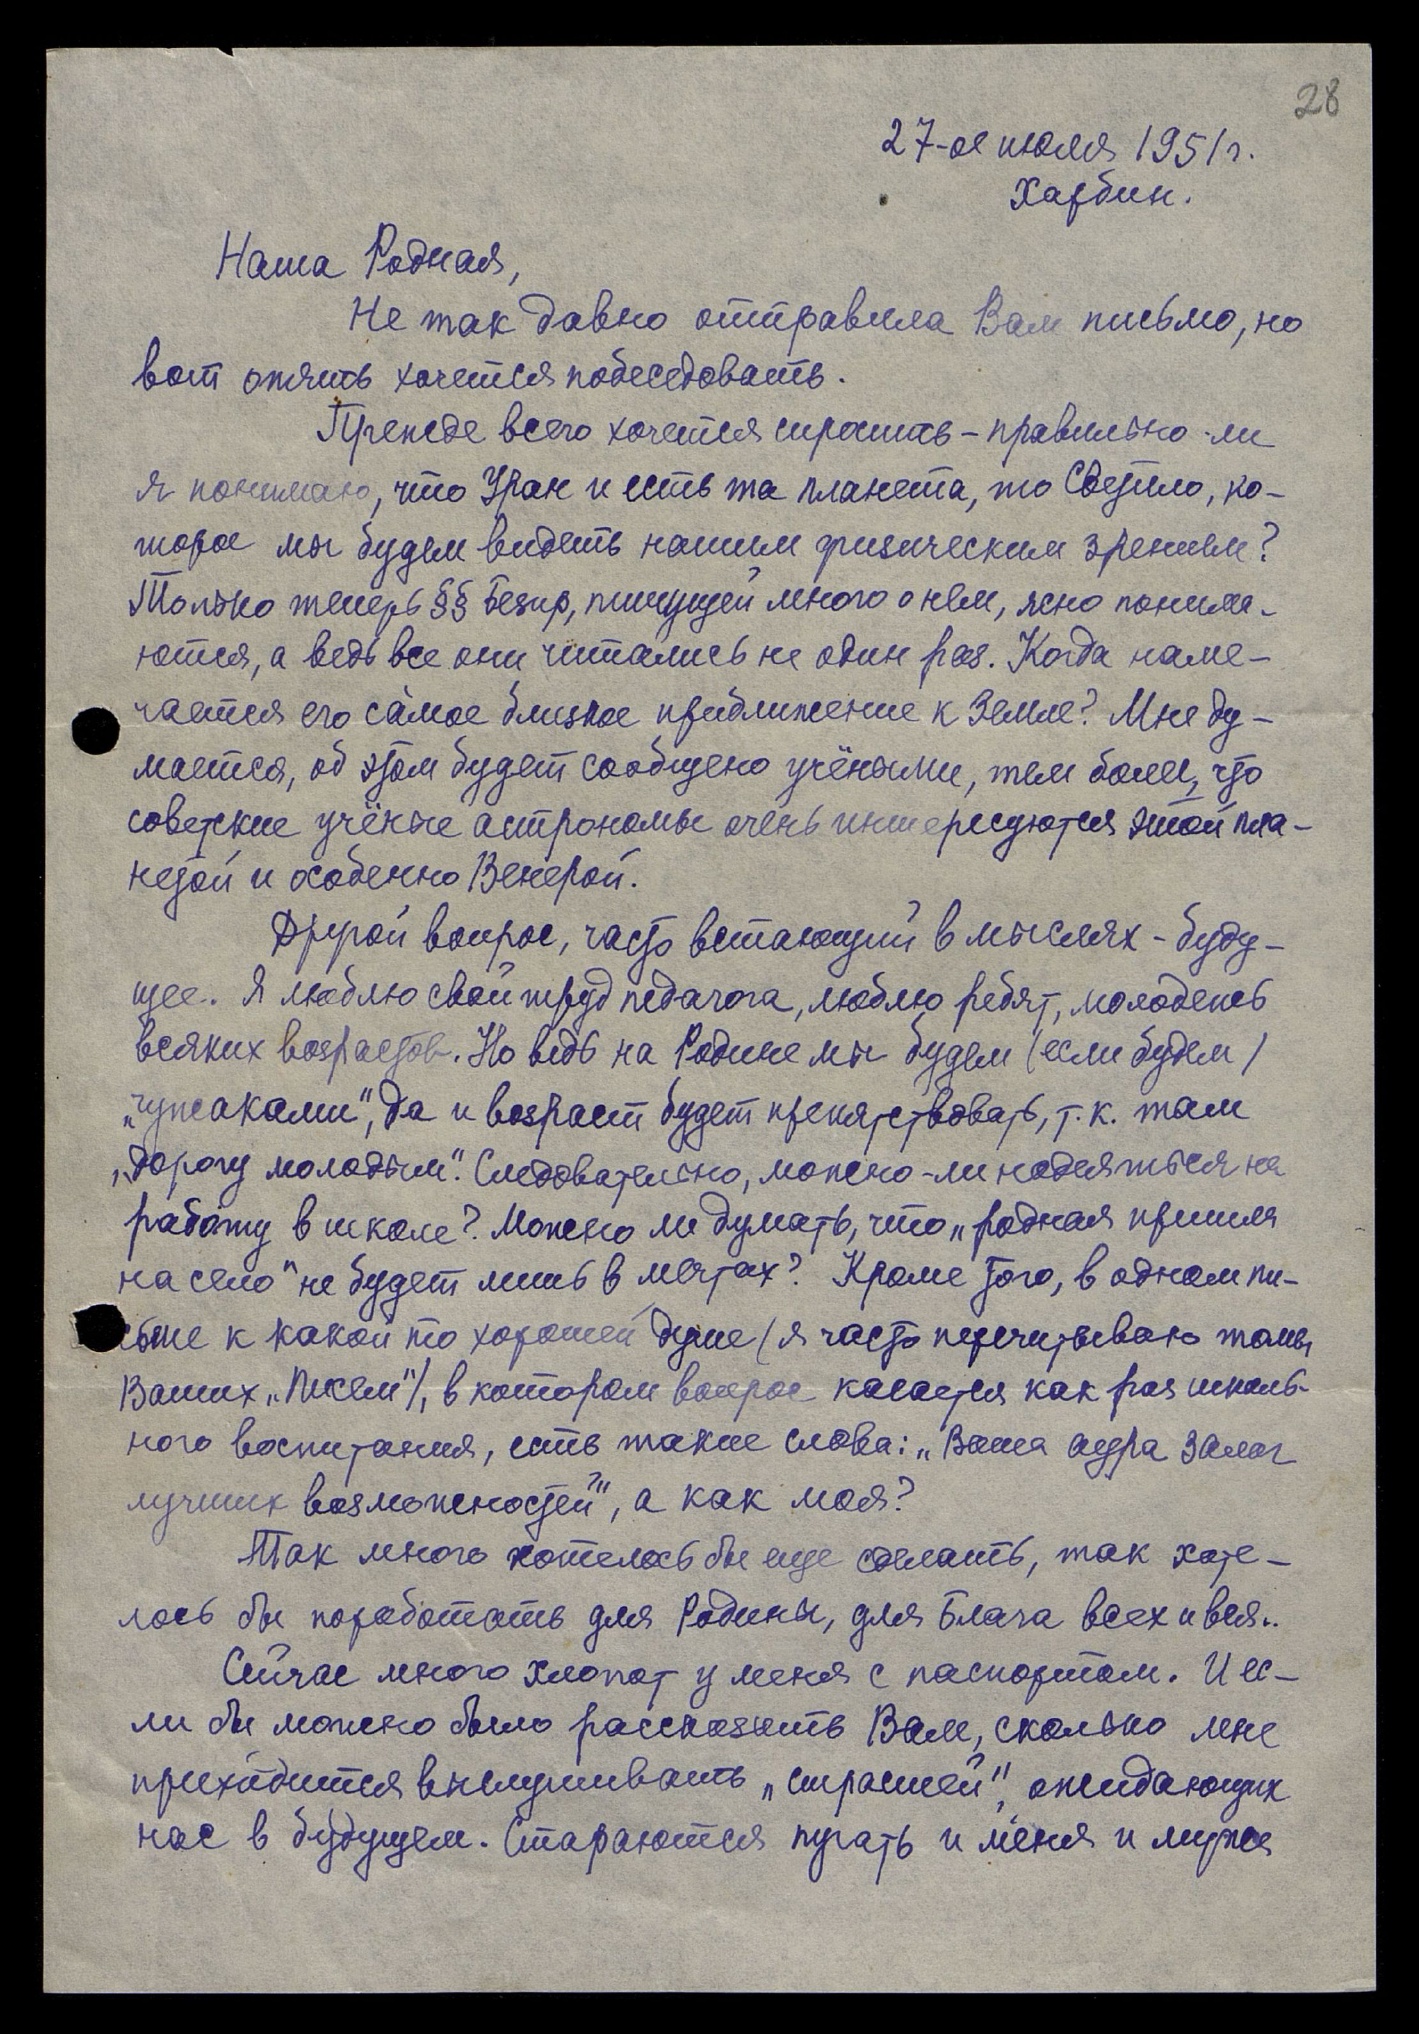 28
27-ое июля 1951 г.
Харбин.
Наша Родная,
Не так давно отправила Вам письмо, но
вот опять хочется побеседовать.
Прежде всего хочется спросить – правильно-ли
я понимаю, что Уран и есть та планета, то Светило, ко-
торое мы будем видеть нашим физическим зрением?
Только теперь §§ Безпр, пишущей много о нем, ясно понима-
ются, а ведь все они читались не один раз. Когда наме-
чается его самое близкое приближение к Земле? Мне ду-
мается, об этом будет сообщено учёными, тем более, что
советские учёные астрономы очень интересуются этой пла-
нетой и особенно Венерой.
Другой вопрос, часто встающий в мыслях – буду-
щее. Я люблю свой труд педагога, люблю ребят, молодежь
всяких возрастов. Но ведь на Родине мы будем /если будем/
„чужаками", да и возраст будет препятствовать, т.к. там
„дорогу молодым". Следовательно, можно-ли надеяться на
работу в школе? Можно ли думать, что „родная пришла
на село" не будет лишь в мечтах? Кроме того, в одном пи-
сьме к какой то хорошей душе /я часто перечитываю томы
Ваших „Писем"/, в котором вопрос касается как раз школь-
ного воспитания, есть такие слова: „Ваша аура залог
лучших возможностей", а как моя?
Так много хотелось бы еще сделать, так хоте-
лось бы поработать для Родины, для Блага всех и вся..
Сейчас много хлопот у меня с паспортом. И ес-
ли бы можно было рассказать Вам, сколько мне
приходится выслушивать „страстей", ожидающих
нас в будущем. Стараются пугать и меня и мужа